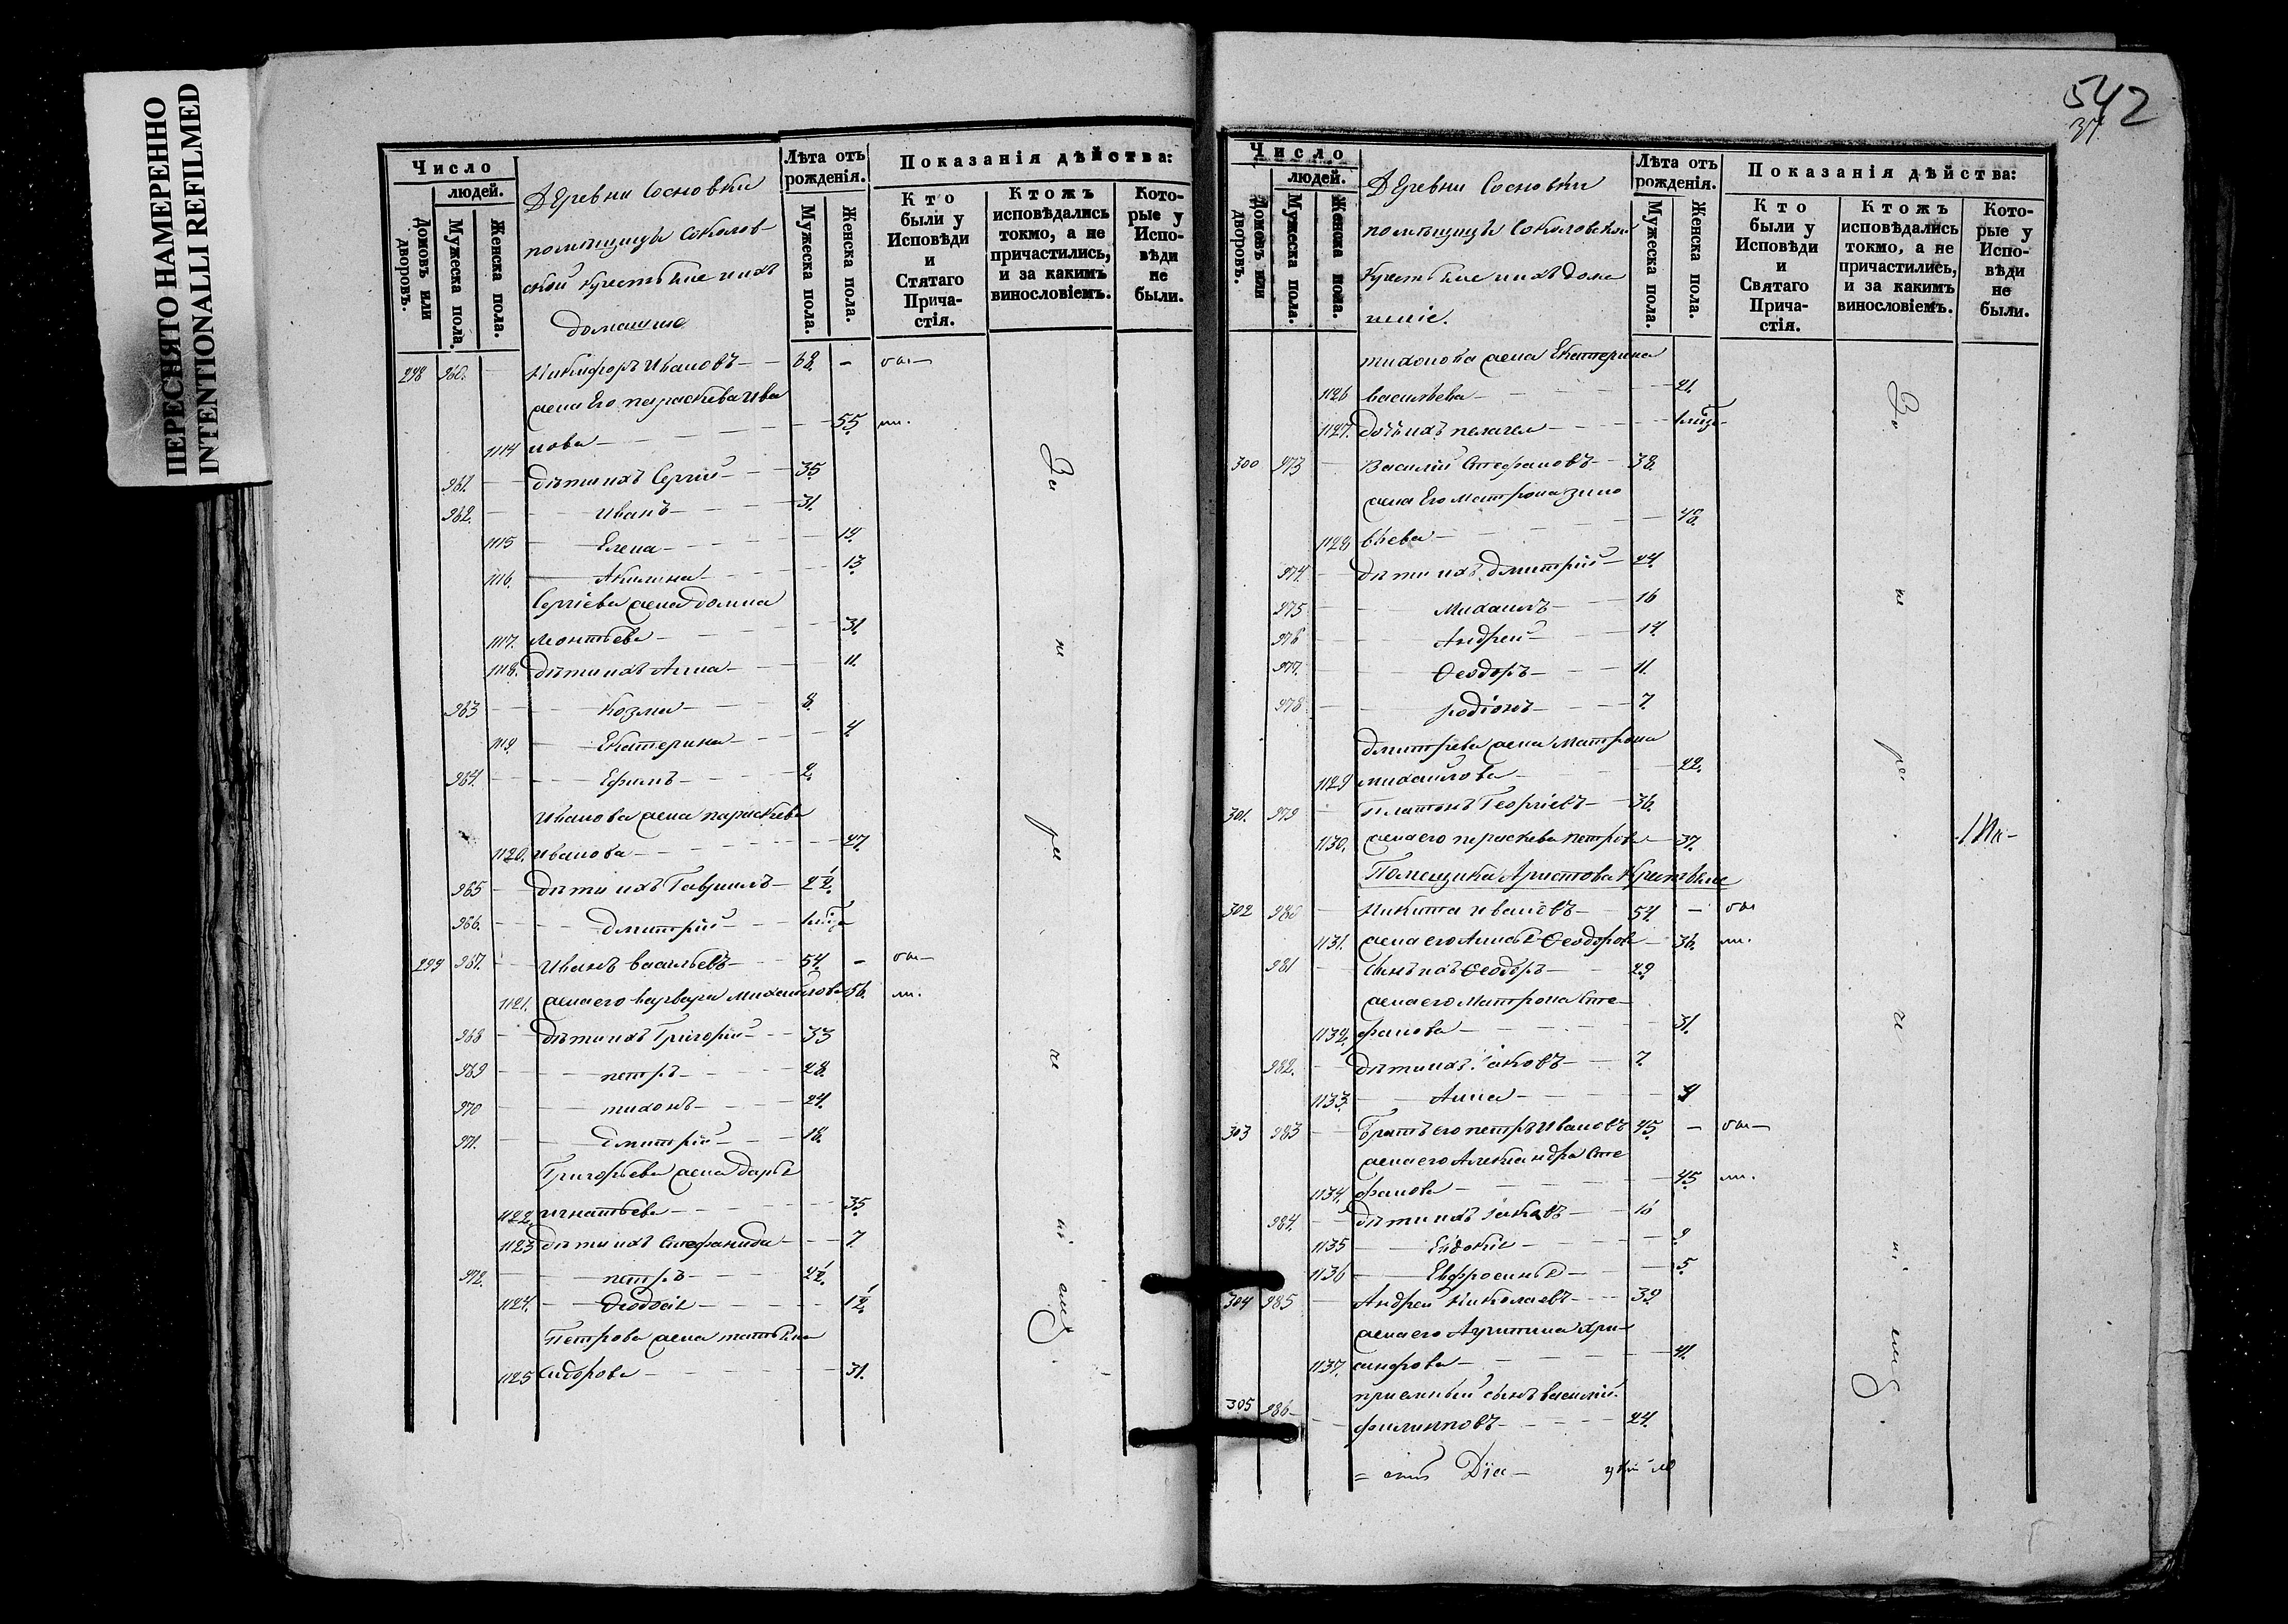 ПЕРЕСНЯТО НАМЕРЕННО
INTENTIONALLI REFILMED
Число
людей.
Домовъ или дворовъ.
Мужеска пола.
Женска пола.
Деревни Сосновки
помѣщицы Соколов-
ской крестьяне и ихъ
домашніе
Лѣта отъ рожденія.
Мужеска пола.
Женска пола.
Показанія дѣйства:
Кто были у Исповѣди и Стятаго Прича-стія.
Ктожъ исповѣдались токмо, а не причастились, и за какимъ винословіемъ.
Кото-рые у Испо-вѣди не были.
298 960. Никифоръ Ивановъ 62 -
жена Его параскева Ива
1114 нова 55
961. дѣти ихъ Сергій 35
962. Иванъ 31.
1115 Елена 19
1116. Акилина 13
Сергіева жена Домна
1117. Леонтьева 31.
1118. дѣти ихъ Анна 11.
963 Козма 8.
1119. Екатерина 4.
964. Ефимъ 2.
Иванова жена параскева
1120. Иванова 27.
965 дѣти ихъ Гавриилъ 2½.
966. Дмитрій
299 967. Иванъ Васильевъ 54. -
1121. жена его Варвара Михайлова 56.
968 дѣти ихъ Григорій 33
969 петръ 28.
970 тихонъ 24.
971. Дмитрій 18.
Григорьева жена Дарья
1122. Игнатьева 35
1123 дѣти ихъ Стефанида 7.
972. петръ 2½.
1124. Феодосія 1½.
Петрова жена татьяна
1125 Сидорова 31.
За не
542
37
Число
людей.
Домовъ или дворовъ.
Мужеска пола.
Женска пола.
Деревни Сосновки
помѣщицы Соколовской
Крестьяне и ихъ дома
шніе.
Лѣта отъ рожденія.
Мужеска пола.
Женска пола.
Показанія дѣйства:
Кто были у Исповѣди и Святаго Прича-стія.
Ктожъ исповѣдались токмо, а не причастились, и за какимъ винословіемъ.
Кото-рые у Испо-вѣди не были.
тихонова жена Екатерина
1126 васильева 21.
1127. дочь ихъ пелагея
300 973 Василій Стефановъ 38.
жена Его Матрона Зино
1128 вьева 48.
974. дѣти ихъ Дмитрій 24.
975 Михаилъ 16
976 Андрей 14.
977. Феодоръ 11.
978 родіонъ 7.
Дмитрева жена Матрона
1129 михайлова 22.
301. 979 Платонъ Георгіевъ 36.
1130. жена его параскева петрова 37.
Помещика Аристова Крестьяне
302 980 Никита Ивановъ 54. -
1131. жена его Анисья Феодорова 36.
981 Сынъ ихъ Феодоръ 29
жена его Матрона Сте-
1132. фанова 31.
982. дѣти ихъ Іаковъ 7.
1133. Анна 4
303 983 Братъ его петръ Ивановъ 45 -
жена его Александра Сте
1134. фанова 45
984. дѣти ихъ Іаковъ 16
1135 Евдокія 9
1136 Евфросинья 5.
304 985 Андрей Николаевъ 39.
жена его
1137. 41.
305 986 приемный сынъ василій
филиповъ 24.
За не